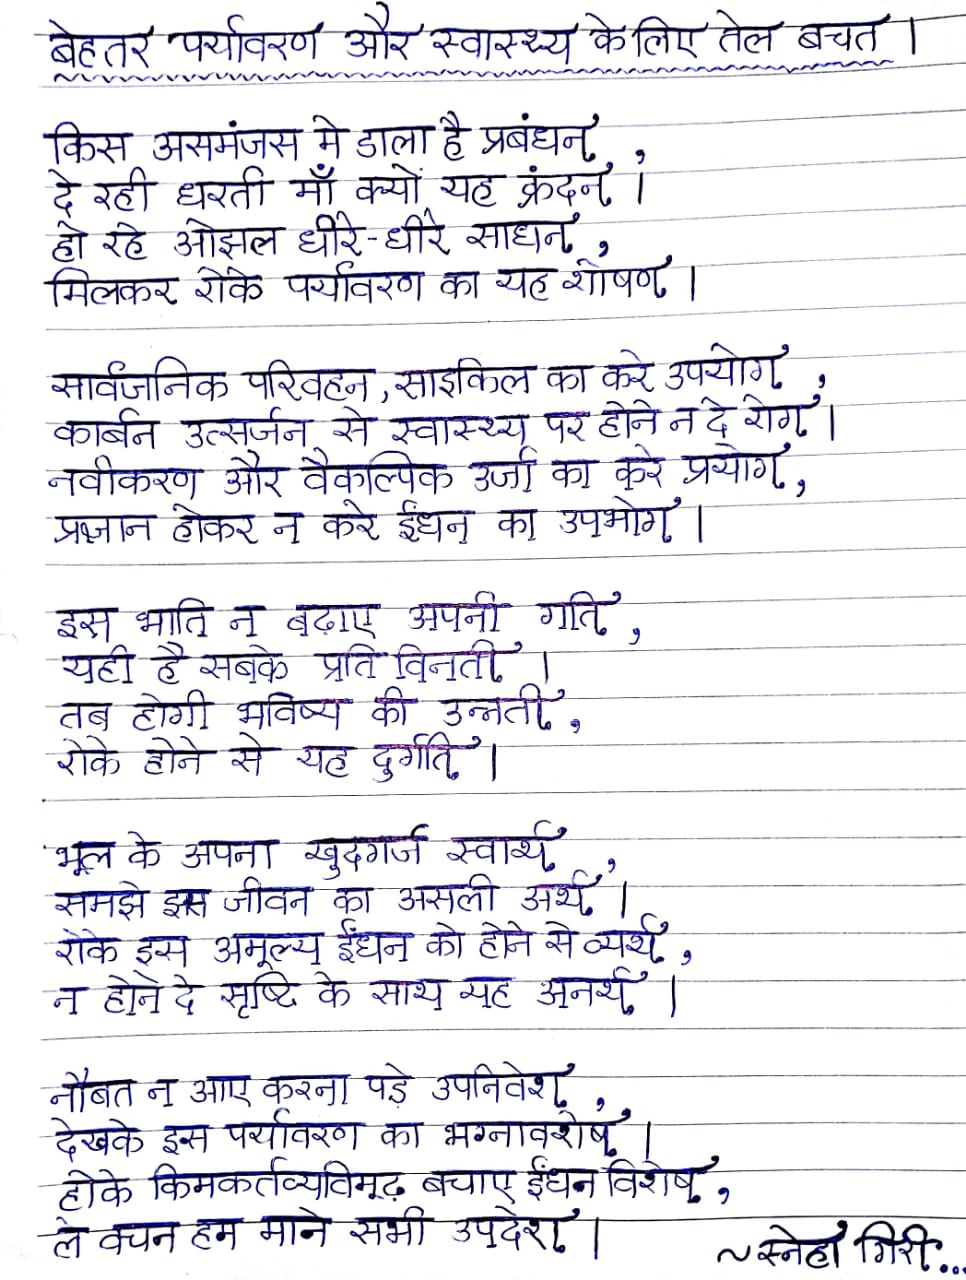 बेहतर पर्यावरण और स्वास्थ्य के लिए तेल बचत ।
किस असमंजस मे डाला है प्रबंधन ,
दे रही धरती माँ क्यों यह क्रंदन ।
हो रहे ओझल धीरे-धीरे साधन ,
मिलकर रोके पर्यावरण का यह शोषण ।
सार्वजनिक परिवहन , साइकिल का करे उपयोग ,
कार्बन उत्सर्जन से स्वास्थ्य पर होने न दे रोग ।
नवीकरण और वैकल्पिक उर्जा का करे प्रयोग ,
प्रज्ञान होकर न करे ईंधन का उपभोग ।
इस भाति न बढ़ाए अपनी गति ,
यही है सबके प्रति विनती ।
तब होगी भविष्य की उन्नती ,
रोके होने से यह दुर्गति ।
भूल के अपना खुदगर्ज स्वार्थ ,
समझे इस जीवन का असली अर्थ ।
रोके इस अमूल्य ईंधन को होने से व्यर्थ ,
न होने दे सृष्टि के साथ यह अनर्थ ।
नौबत न आए करना पड़े उपनिवेश ,
देखके इस पर्यावरण का भग्नावशेष ।
होके किमकर्तव्यविमूढ़ बचाए ईंधन विशेष ,
ले वचन हम माने सभी उपदेश ।
~ स्नेहा गिरी...